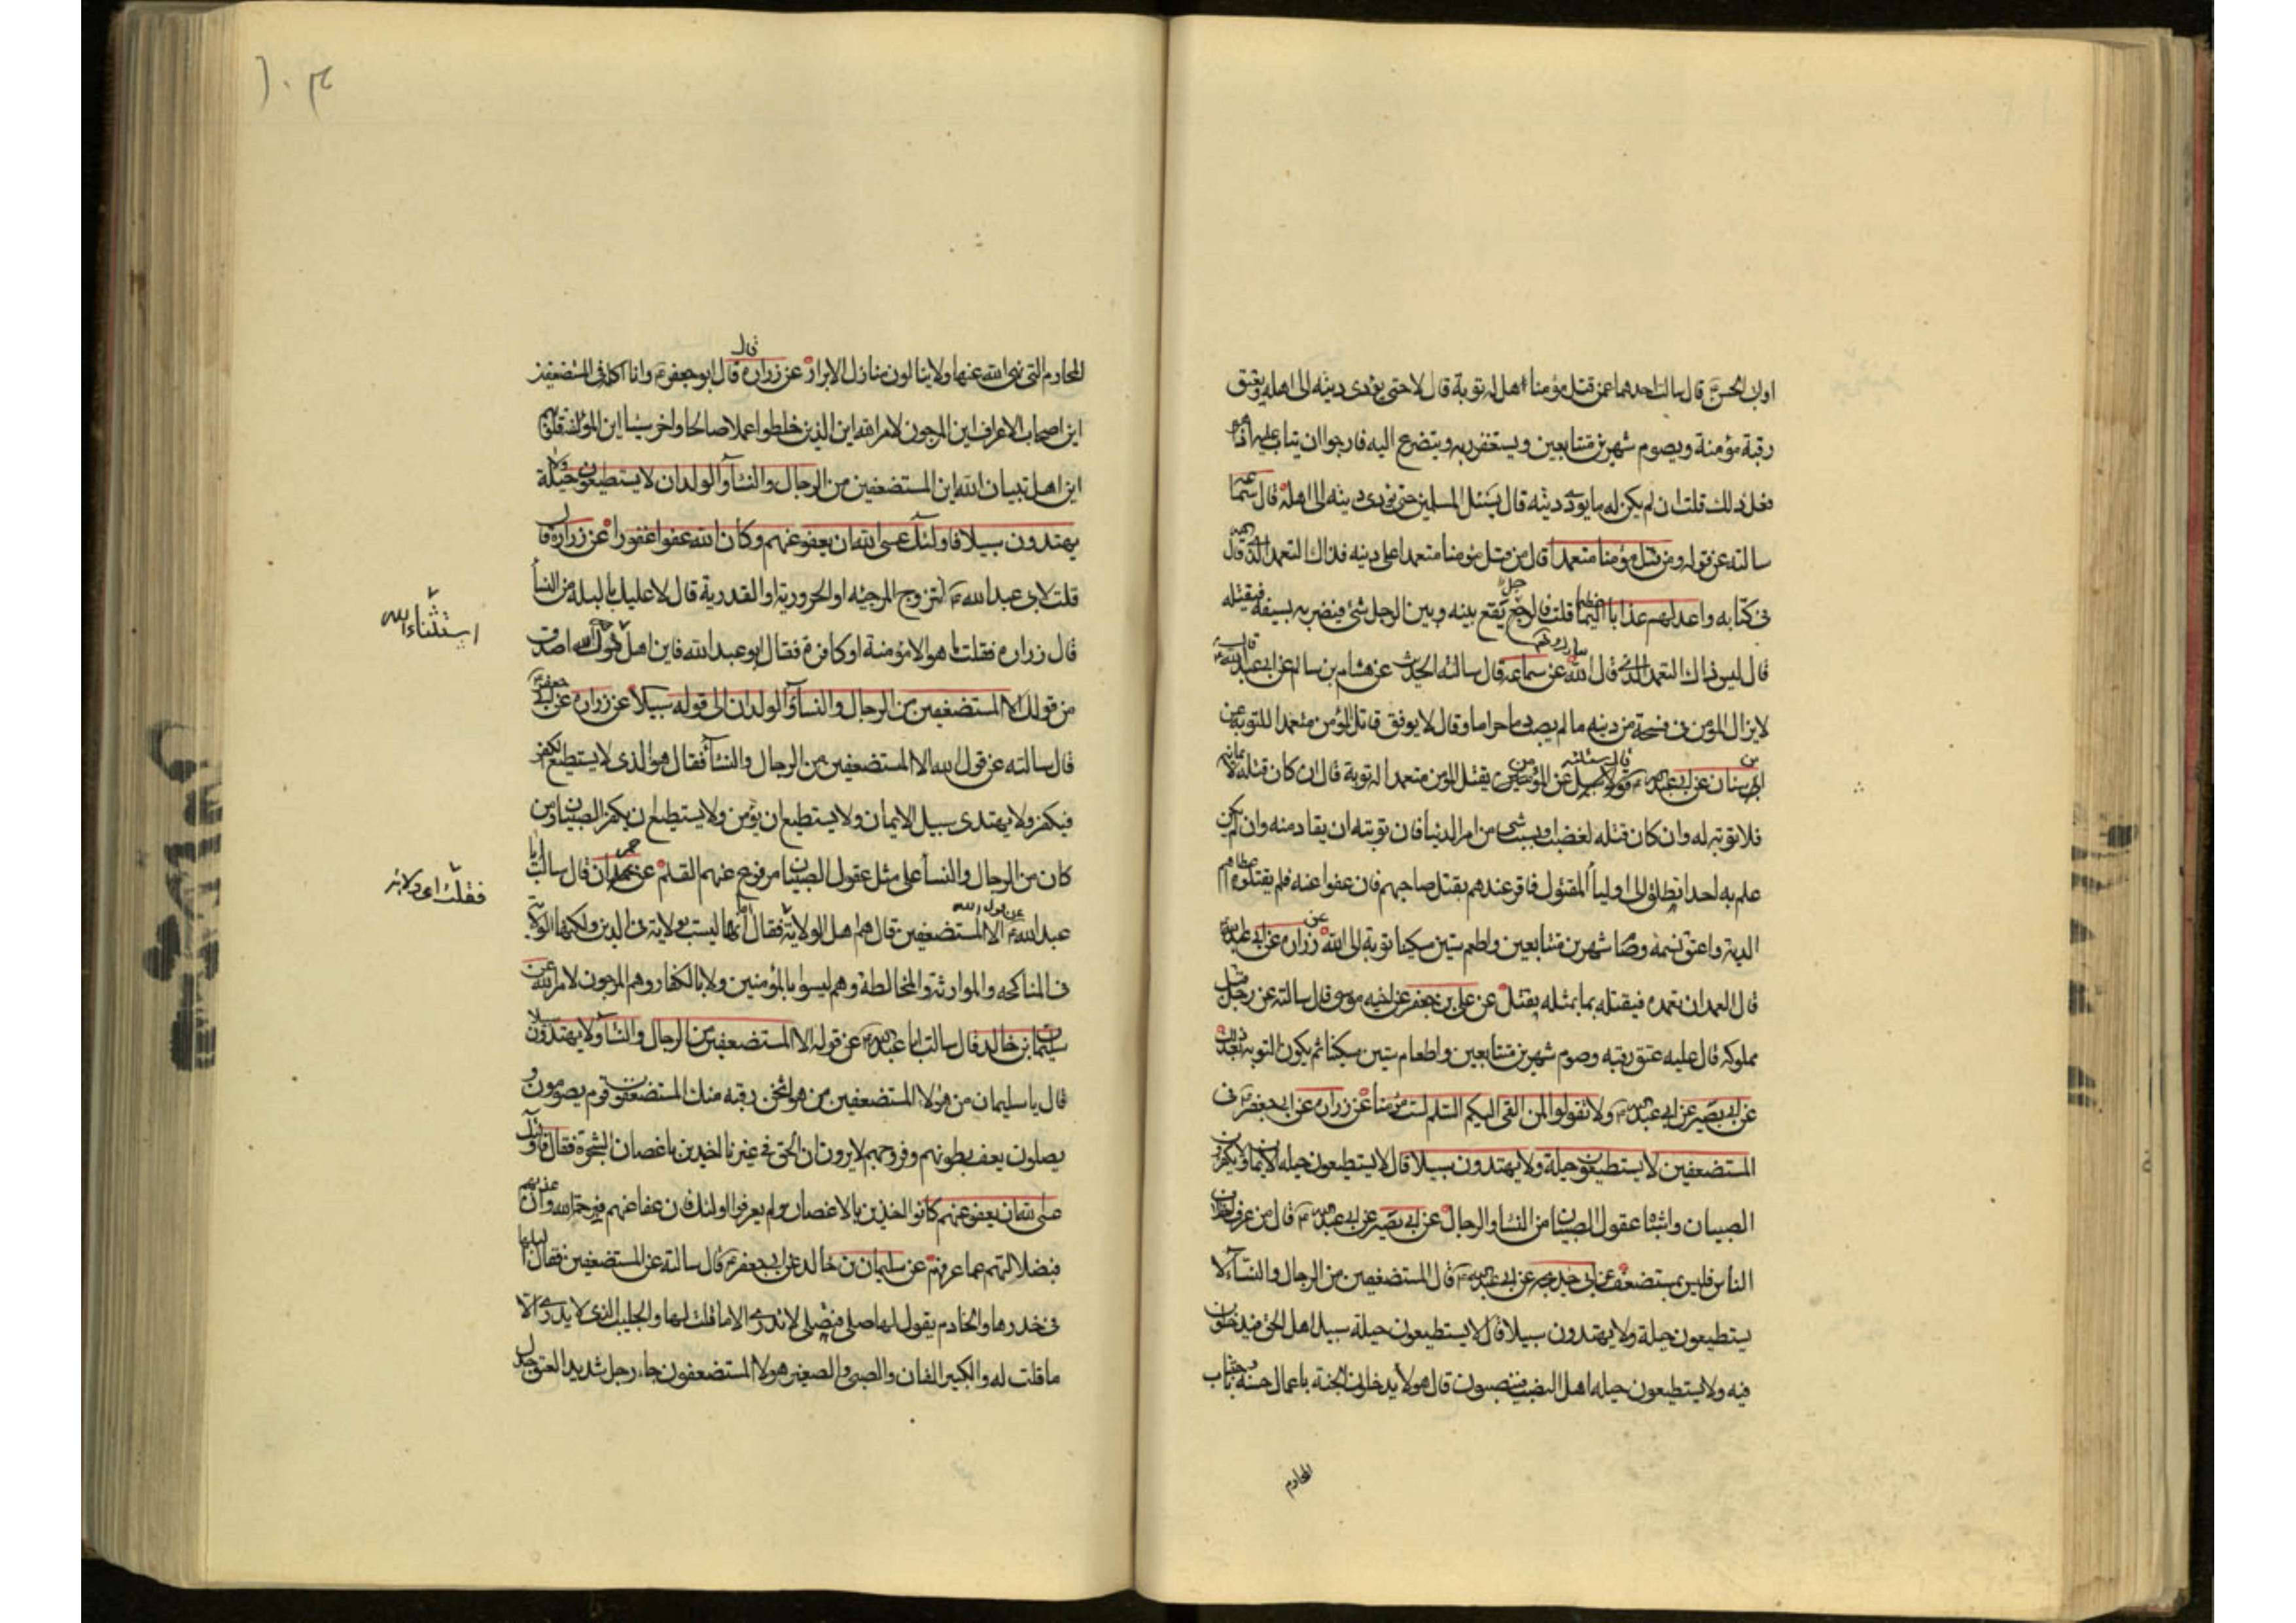 او ابى الحسن ع قال سالت احدهما عمن قتل مؤمنا هل له توبة قال لا حتى يؤدى ديته الى اهله ويعتق
رقبة مؤمنة ويصوم شهرين متتابعين ويستغفر ربه ويتضرع اليه فارجوا ان يتاب عليه اذا هو
فعل ذلك قلت ان لم يكن له ما يؤدى ديته قال يسئل المسلمين حتى يؤدى ديته الى اهله قال سماعة
سالته عن قوله ومن قتل مؤمنا متعمدا قال من قتل مؤمنا متعمدا على دينه فذاك التعمد الذى قال الله
فى كتابه واعد لهم عذابا اليما عظيما قلت فالرجل يقع بينه وبين الرجل شئ فيضربه بسيفه فيقتله
قال ليس ذاك التعمد الذى قال الله عن سماعه قال سالته الحديث عن هشام بن سالم عن ابى عبد الله ع قال
لا يزال المؤمن فى فسحة من دينه ما لم يصب دما حراما وقال لا يوفق قاتل المؤمن متعمدا للتوبة عن
ابن سنان عن ابى عبد الله ع قال سئلته عن المؤمن يقتل المؤمن متعمدا له توبة قال ان كان قتله لايمانه
فلا توبة له وان كان قتله لغضب او بسبب شئ من امر الدنيا فان توبته ان يقاد منه وان لم يكن
علم به احد انطلق الى اولياء المقتول فاقر عندهم بقتل صاحبهم فان عفوا عنه فلم يقتلوه اعطاهم
الدية واعتق نسمة وصام شهرين متتابعين واطعم ستين مسكينا توبة الى الله عن زراره عن ابى عبد الله ع
قال العمد ان تعمده فيقتله بما بمثله يقتل عن على بن جعفر عن اخيه موسى قال سالته عن رجل قتل
مملوكه قال عليه عتق رقبه وصوم شهرين متتابعين واطعام ستين مسكينا ثم يكون التوبة بعد ذلك
عن ابى بصير عن ابى عبد الله ع ولا تقولوا لمن القى اليكم السلم لست مؤمنا عن زراره عن ابى جعفر ع فى
المستضعفين لا يستطيعون حيلة ولا يهتدون سبيلا قال لا يستطيعون حيله الايمان ولا يكفرون
الصبيان واشباه عقول الصبيان من النساء والرجال عن ابى بصير عن ابى عبد الله ع قال من عرف اختلاف
الناس فليس بمستضعف عن ابى خديجه عن ابى عبد الله ع قال المستضعفين من الرجال والنسآء لا
يستطيعون حيلة ولا يهتدون سبيلا قال لا يستطيعون حيلة سبيل اهل الحق فيدخلون
فيه ولا يستطيعون حيله اهل النصب فينصبون قال هولاء يدخلون الجنة باعمال حسنة وباجتناب
المحارم
١٠٣
المحارم التى نهى الله عنها ولا ينالون منازل الابرار عن زراره قال قال ابو جعفر ع وانا اكلمه فى المستضعفين
اين اصحاب الاعراف اين المرجون لامر الله اين الذين خلطوا عملا صالحا واخر سيئا اين المؤلفة قلوبهم
اين اهل تبيان الله اين المستضعفين من الرجال والنسآء والولدان لا يستطيعون حيلة ولا
يهتدون سبيلا فاولئك عسى الله ان يعفو عنهم وكان الله عفوا غفورا عن زرارة قال
قلت لابى عبد الله ع اتزوج المرجئه او الحرورية او القدرية قال لا عليك بالبله من النساء
قال زراره فقلت ما هو الا مؤمنة او كافرة فقال ابو عبد الله فاين اهل قول الله اصدق
استثناء الله
من قولك الا المستضعفين من الرجال والنسآء والولدان الى قوله سبيلا عن زراره عن ابى جعفر ع
قال سالته عن قول الله الا المستضعفين من الرجال والنساء فقال هو الذى لا يستطيع الكفر
فيكفر ولا يهتدى سبيل الايمان ولا يستطيع ان يؤمن ولا يستطيع ان يكفر الصبيان ومن
كان من الرجال والنساء على مثل عقول الصبيان مرفوع عنهم القلم عن حمران قال سالت ابا
عبد الله ع عن قول الله الا المستضعفين قال هم اهل الولاية فقال اما انها ليست بولاية فى الدين ولكنها الولاية
فقلت اى ولاية
فى المناكحه والموارثة والمخالطة وهم ليسوا بالمؤمنين ولا بالكفار وهم المرجون لامر الله عن
سليمان بن خالد قال سالت ابا عبد الله ع عن قوله الا المستضعفين من الرجال والنسآء ولا يهتدون سبيلا
قال يا سليمان من هولاء المستضعفين من هو اثخن رقبه منك المستضعفون قوم يصومون و
يصلون يعف بطونهم وفروجهم لا يرون ان الحق فى غيرنا اخذين باغصان الشجرة فقال فاولئك
عسى الله ان يعفو عنهم كانوا اخذين بالاغصان ولم يعرفوا اولئك فان عفا عنهم فبرحمة الله وان عذبهم
فبضلالتهم عما عرفهم عن سليمان بن خالد عن ابى جعفر ع قال سالته عن المستضعفين فقال البلها
فى خدرها والخادم يقول لها صلى فتصلى لا تدرى الا ما قلت لها والجليب الذى لا يدرى الا
ما قلت له والكبير الفان والصبى والصغير هولاء المستضعفون فاما رجل شديد العنق جدل